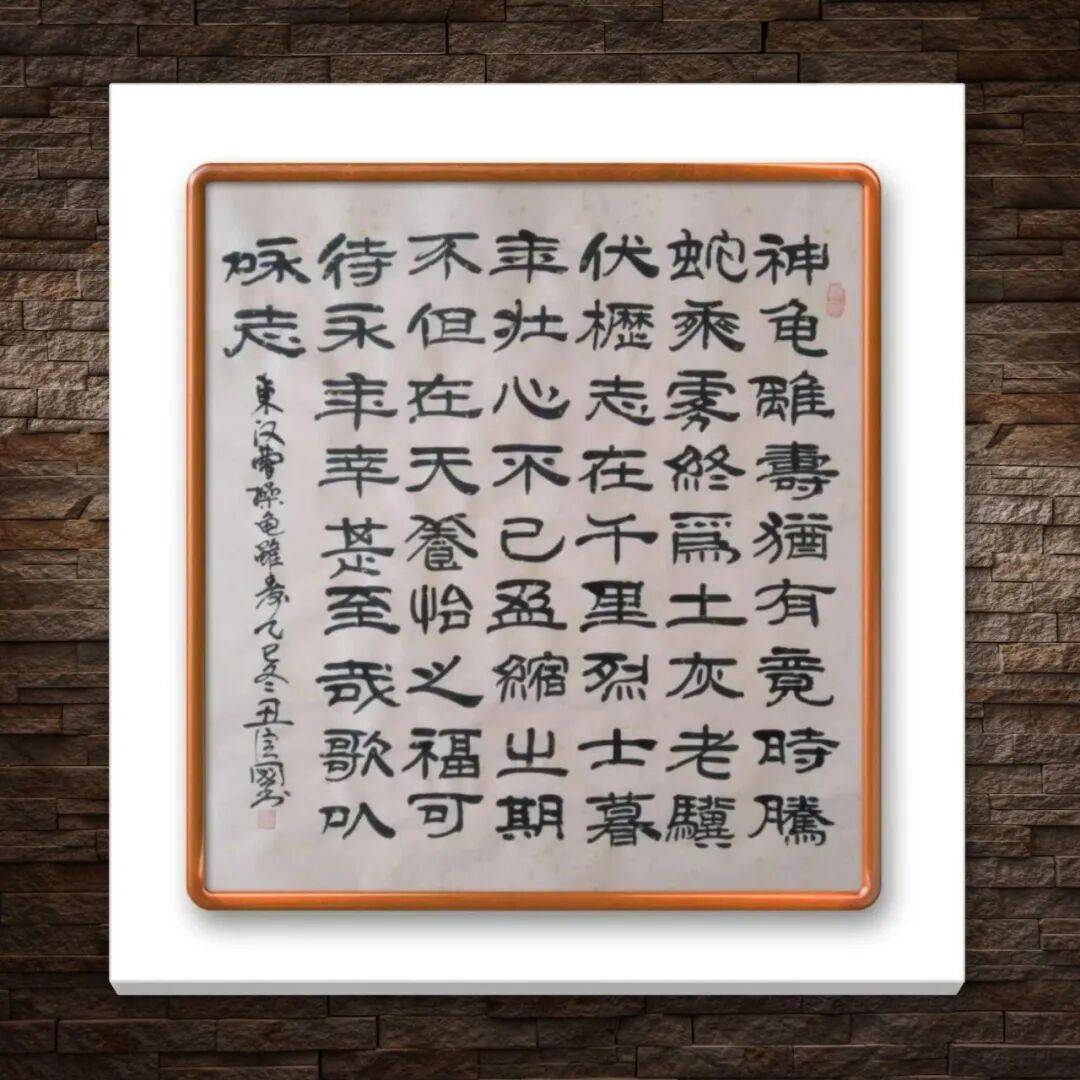 神龟雖壽猶有竟時騰
蛇乘雾終爲土灰老驥
伏櫪志在千里烈士暮
年壮心不已盈縮之期
不但在天養怡之福可
待永年幸甚至哉歌以
咏志
東汉曹操龟雖寿乙巳冬丑國书